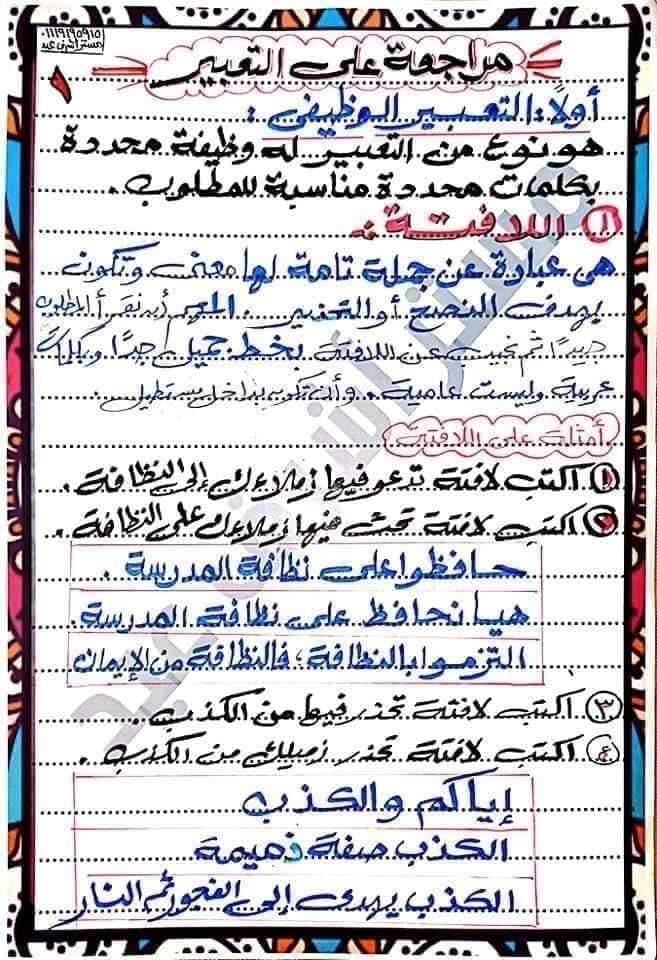 ٠١١١٩١٩٥٩١٥
مستر أشرف عيد
مراجعة على التعبير
٩
أولًا: التعبير الوظيفى :
هو نوع من التعبير له وظيفة محددة
بكلمات محددة مناسبة للمطلوب .
١ اللافتة :
هى عبارة عن جملة تامة لها معنى وتكون
بهدف النصح أو التحذير . المهم أن نقرأ المطلوب
جيدًا ثم نجيب عن اللافتة بخط جميل جدًا وبكلمات
عربية وليست عامية . وأن تكون بداخل مستطيل .
أمثلة على اللافتة
١ اكتب لافتة تدعو فيها زملاءك إلى النظافة .
٢ اكتب لافتة تحث فيها زملاءك على النظافة .
حافظوا على نظافة المدرسة .
هيا نحافظ على نظافة المدرسة .
التزموا بالنظافة ؛ فالنظافة من الإيمان
٣ اكتب لافتة تحذر فيها من الكذب .
٤ اكتب لافتة تحذر زميلك من الكذب .
إياكم والكذب
الكذب صفة ذميمة
الكذب يهدى إلى الفجور ثم النار
مستر أشرف عيد